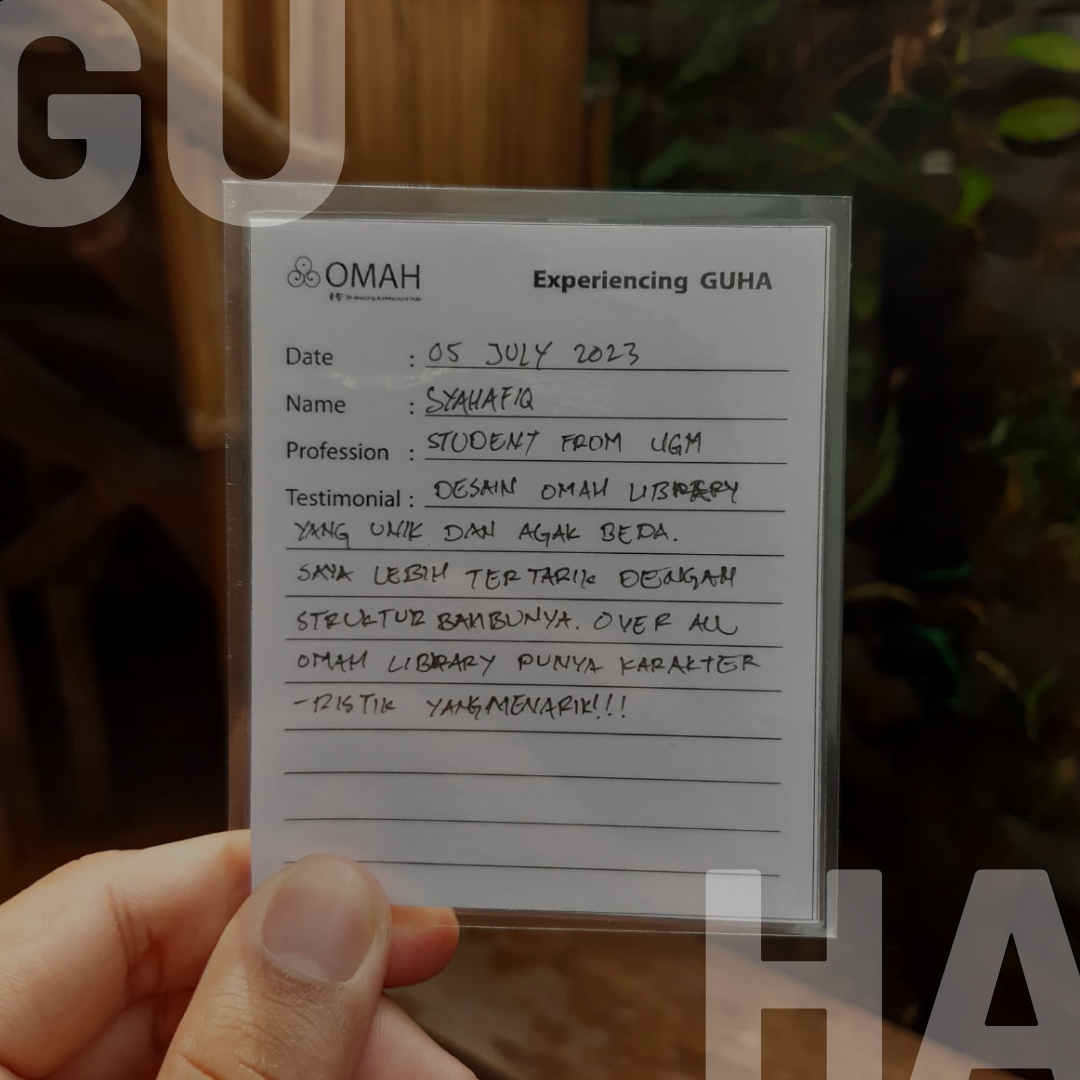 GU
OMAH
Experiencing GUHA
Date : 05 JULY 2023
Name : SYAHAFIQ
Profession : STUDENT FROM UGM
Testimonial : DESAIN OMAH LIBRARY
YANG UNIK DAN AGAK BEDA.
SAYA LEBIH TERTARIK DENGAN
STRUKTUR BAMBUNYA. OVER ALL
OMAH LIBRARY PUNYA KARAKTER
-RISTIK YANG MENARIK!!!
HA